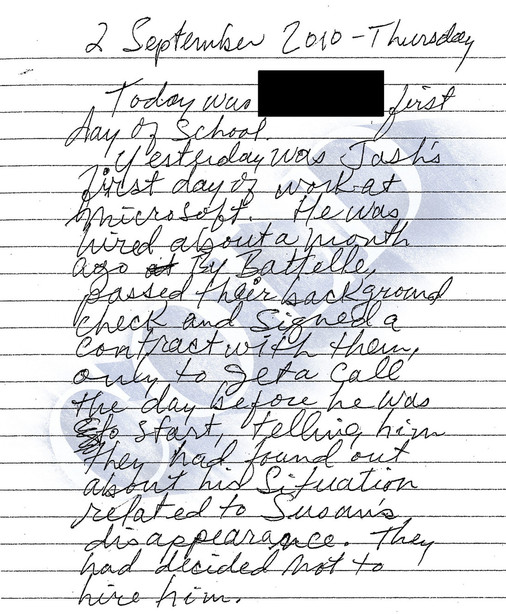 2 September 2010 - Thursday
Today was first
day of School.
Yesterday was Josh's
first day of work at
Microsoft. He was
hired about a month
ago at By Battelle,
passed their background
check and Signed a
contract with them,
only to get a call
the day before he was
to start, telling him
they had found out
about his Situation
related to Susan's
disappearance. They
had decided not to
hire him.